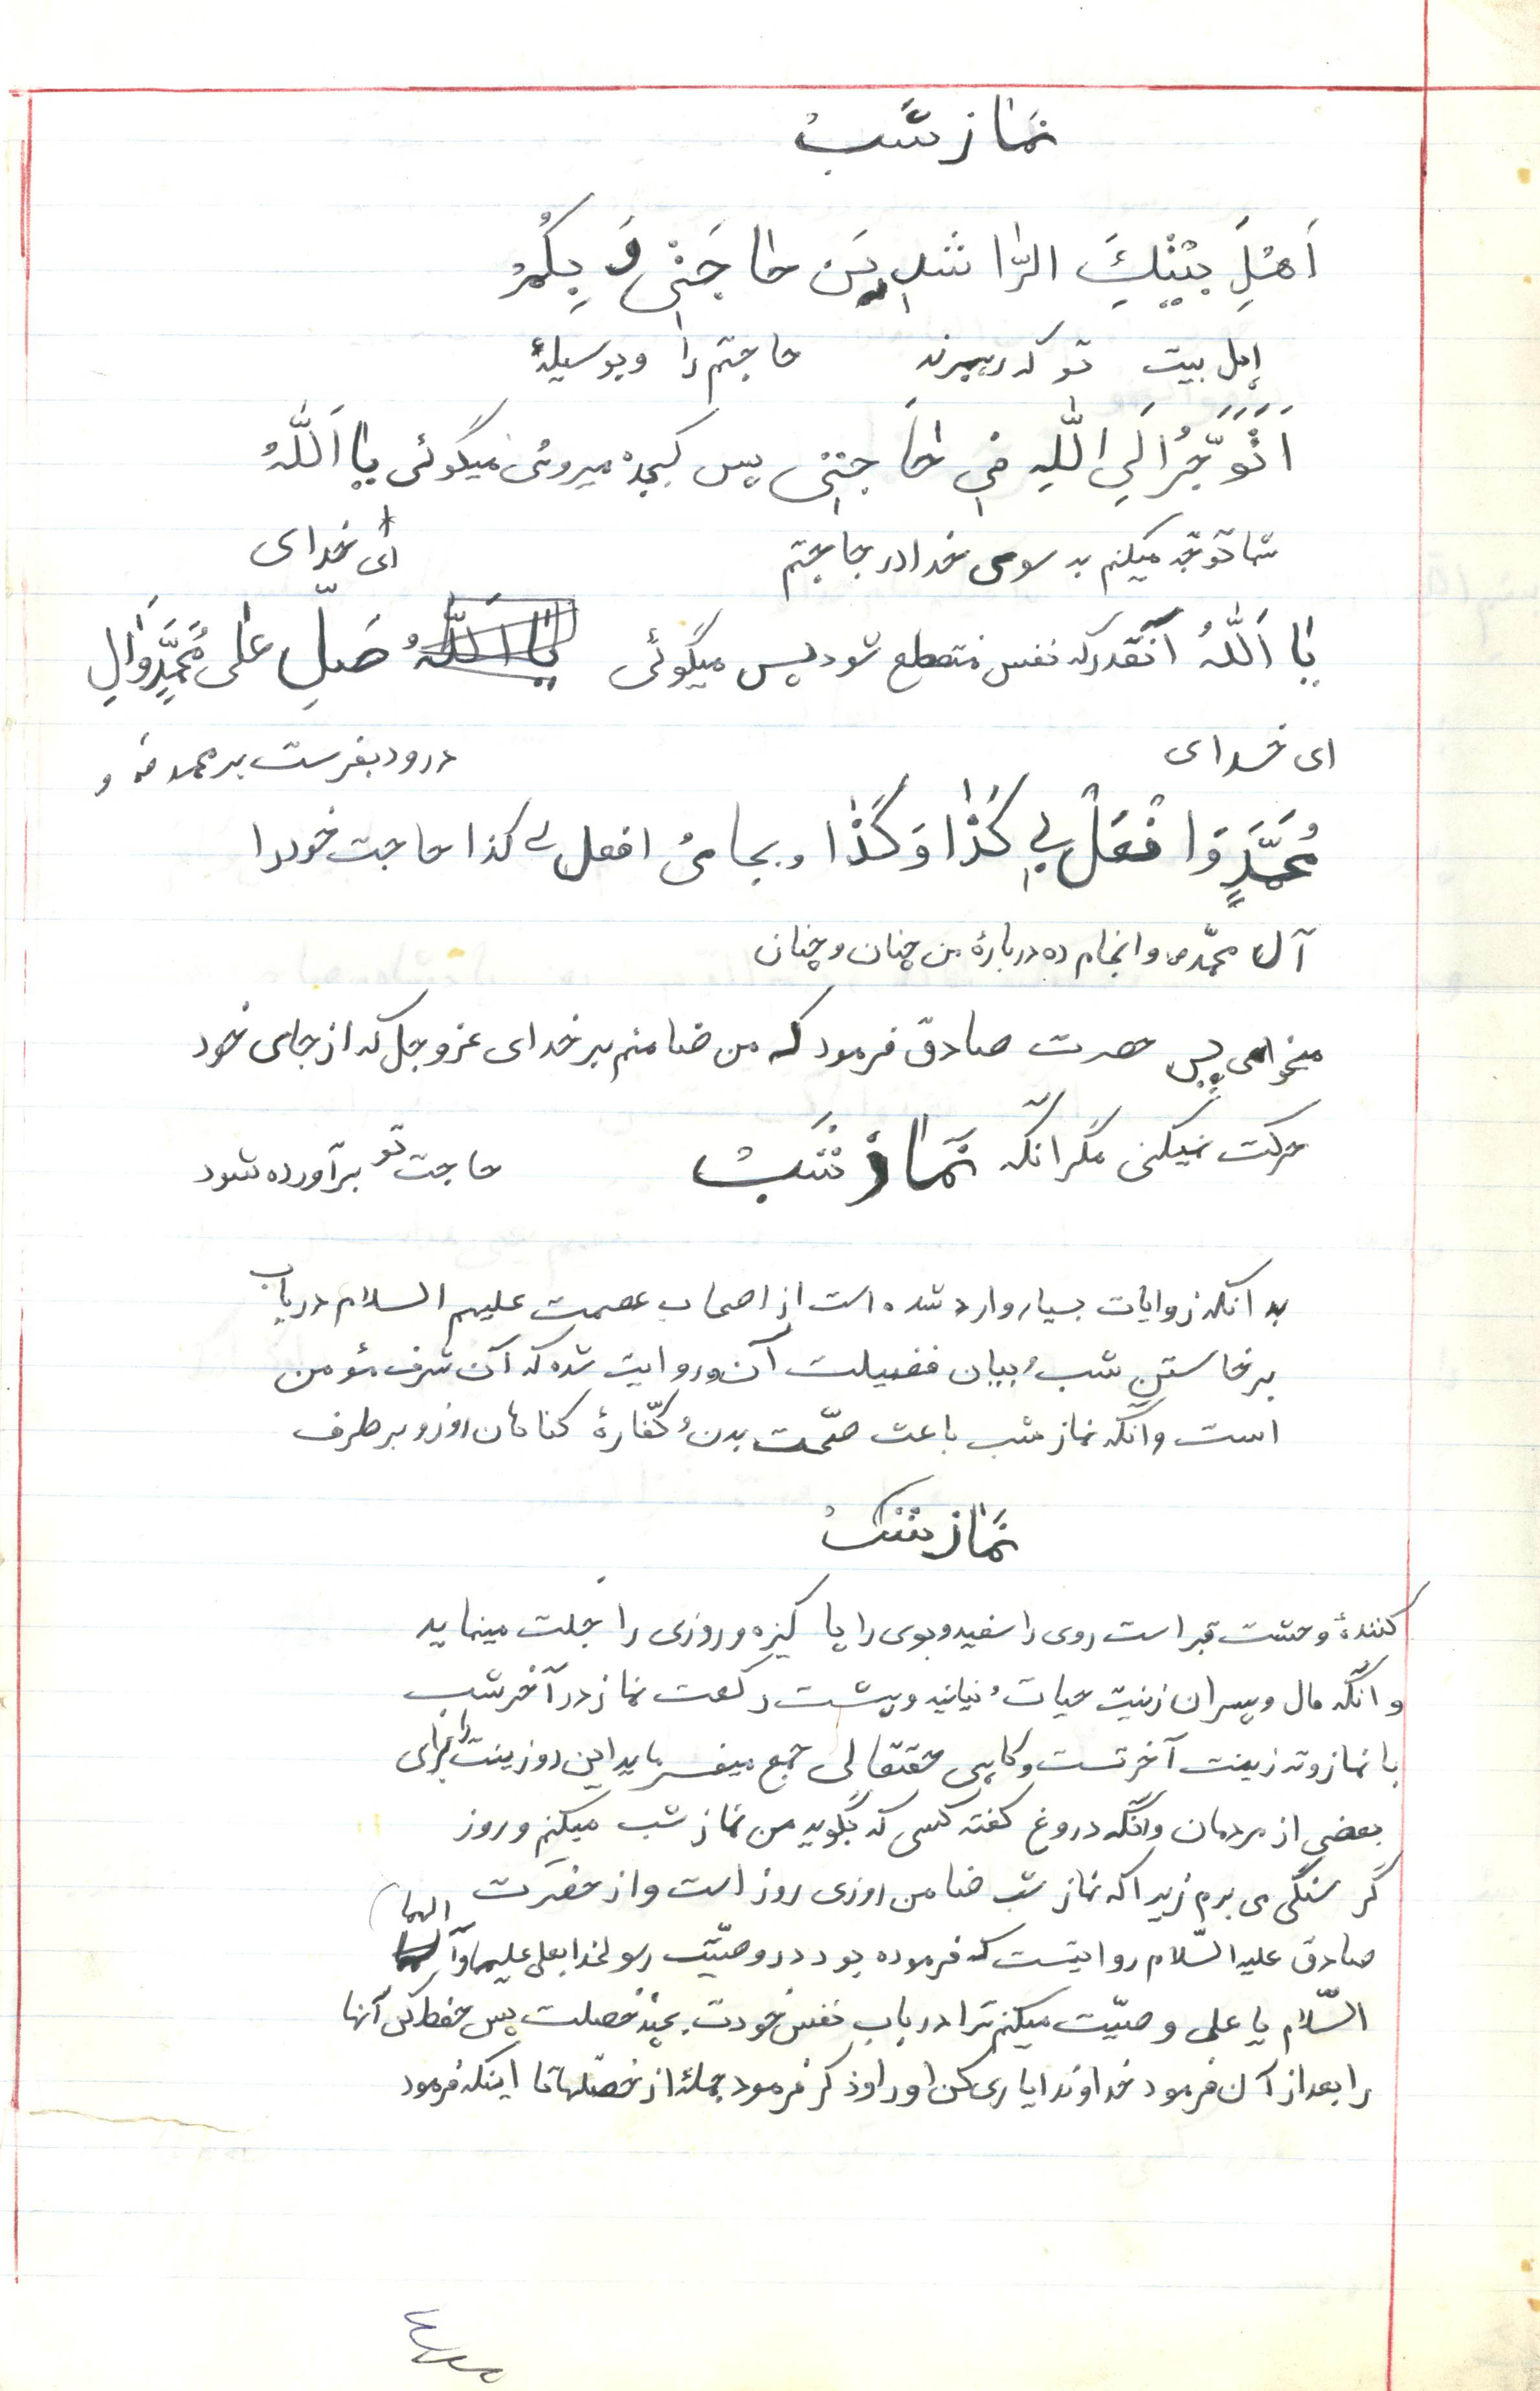 نَمٰاز شَّبْ
اَهْلَ بَيْتِكَ الرّٰا شِدِينَ حٰا جَتٖى وَ بِكُمْ
اهل بیت تو که رهبرند حاجتم را و بوسیلهٔ
اَتَوَجَّهُ اِلَى اللّٰهِ فٖى حٰا جَتٖى پس بسجده میروی میگوئی یٰا اَللّٰهُ
شما توجّه میکنم به سوی خدا در حاجتم ای خدای
یٰا اَللّٰهُ آنقدر که نفس منقطع شود پس میگوئی یٰا اَللّٰهُ صَلِّ عَلٰى مُحَمَّدٍ وَاٰلِ
ای خدای درود بفرست بر محمد ص و
مُحَمَّدٍ وَا فْعَلْ بٖى كَذٰا وَ كَذٰا و بجای افعل بی کذا حاجت خود را
آل محمّد ص و انجام ده دربارهٔ من چنان و چنان
میخواهی پس حضرت صادق فرمود که من ضامنم بر خدای عزوجل که از جای خود
حرکت نمیکنی مگر آنکه نَمٰاز شَبْ حاجت تو برآورده شود
بدانکه روایات بسیار وارد شده است از اصحاب عصمت علیهم السلام در باب
برخاستن شب و بیان فضیلت آن و روایت شده که آن شرف مؤمن
است و آنکه نماز شب باعث صحّت بدن و کفّارهٔ کناهان روز و برطرف
نَمٰاز شَبْ
کنندهٔ وحشت قبر است روی را سفید و بوی را پاکیزه و روزی را جلت مینماید
و آنکه مال و پسران زینت حیات دنیایند و هشت رکعت نماز در آخر شب
با نماز وتر زینت آخرتست و کاهی حقتعالی جمع میفرماید این دو زینت را برای
بعضی از مردمان و آنکه دروغ گفته کسی که بگوید من نماز شب میکنم و روز
گرسنگی می برم زیرا که نماز شب ضامن روزی روز است و از حضرت
صادق علیه السّلام روایتست که فرموده بود در وصیّت رسولخدا بعلی علیهما و آلهما
السّلام یا علی وصیّت میکنم ترا در باب نفس خودت بچند خصلت پس حفظ کن آنها
را بعد از آن فرمود خداوندا یاری کن او را و ذکر فرمود جملهٔ از خصلتها تا اینکه فرمود